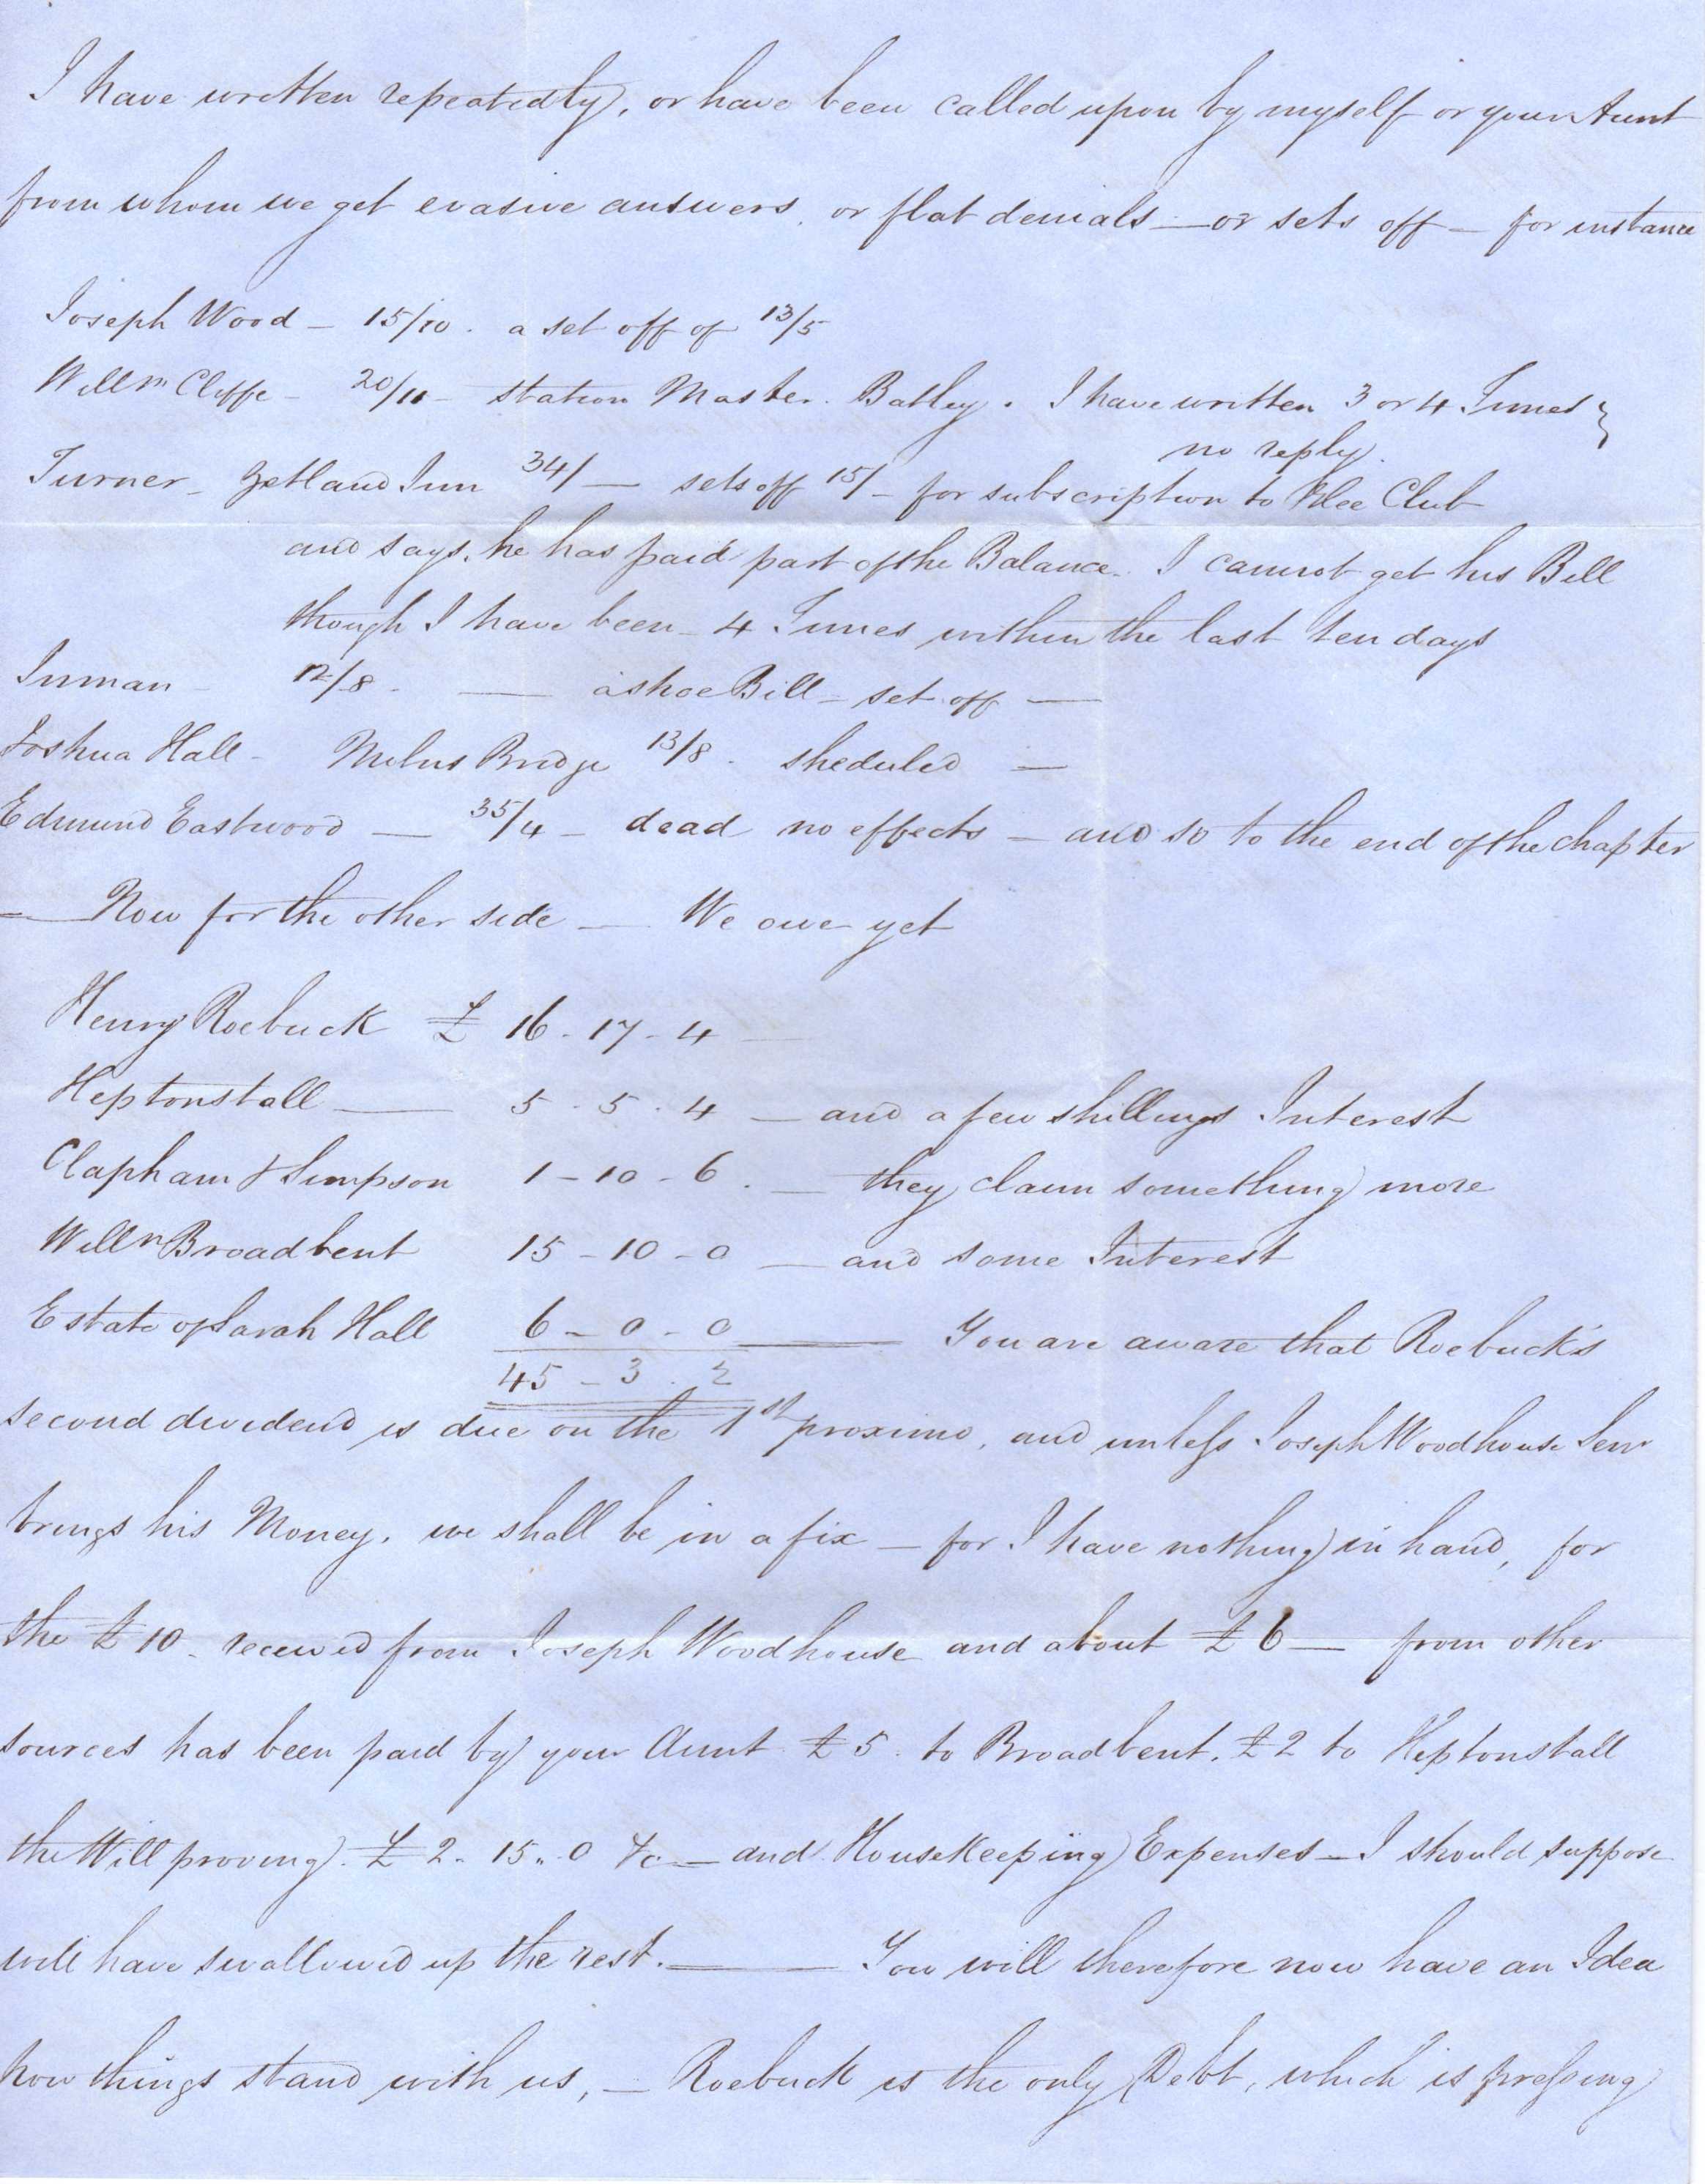 I have written repeatedly, or have been called upon by myself or your Aunt
from whom we get evasive answers, or flat denials — or sets off — for instance
Joseph Wood – 15/10. a set off of 13/5
Willm Cliffe – 20/11 – station Master. Batley. I have written 3 or 4 Times }
no reply.
Turner – Zetland Inn 34/ — sets off 15/ – for subscription to Glee Club
and says, he has paid part of the Balance. I cannot get his Bill
though I have been – 4 Times within the last ten days
Inman – 12/8. — a shoe Bill – set off —
Joshua Hall – Milns Bridge 13/8. sheduled —
Edmund Eastwood — 35/4 – dead no effects – and so to the end of the chapter
— Now for the other side — We owe yet
Henry Roebuck £ 16 - 17 - 4 —
Heptonstall — 5 - 5 - 4 — and a few shillings Interest
Clapham & Simpson 1 - 10 - 6. — they claim something more
Willm Broadbent 15 - 10 - 0 — and some Interest
Estate of Sarah Hall 6 - 0 - 0 — You are aware that Roebuck's
45 - 3 - 2
second dividend is due on the 1st proximo, and unless Joseph Woodhouse Senr
brings his Money, we shall be in a fix – for I have nothing in hand, for
the £10 – received from Joseph Woodhouse and about £6 — from other
sources has been paid by your Aunt £5. to Broadbent, £2 to Heptonstall
the Will proving. £ 2. 15.. 0 &c — and HouseKeeping Expenses – I should suppose
will have swallowed up the rest. — You will therefore now have an Idea
how things stand with us, – Roebuck is the only Debt, which is pressing